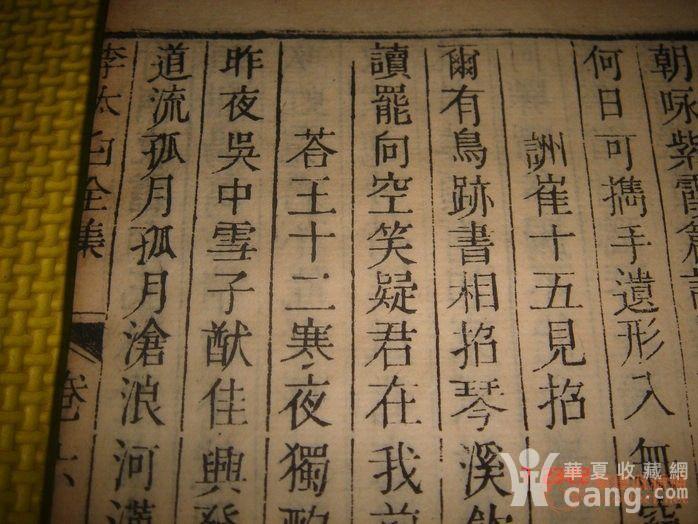 朝咏紫霞篇
何日可擕手遺形入無
詶崔十五見招
爾有鳥跡書相招琴溪飲
讀罷向空笑疑君在我前
荅王十二寒夜獨酌
昨夜吳中雪子猷佳興發
道流孤月孤月滄浪河漢
李太白全集 卷六
華夏收藏網
cang.com